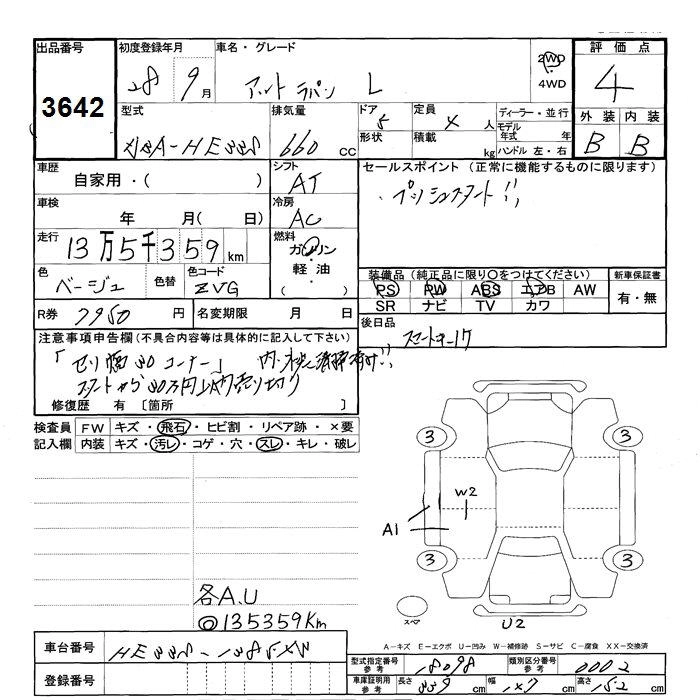 出品番号
3642
初度登録年月
28 9月
車名・グレード
アルト ラパン L
2WD
4WD
評価点
4
型式
DBA-HE33S
排気量
660 CC
ドア 5
形状
定員 4 人
積載 kg
ディーラー・並行
モデル年式 年
ハンドル 左・右
外装 内装
B B
車歴
自家用・( )
シフト
AT
セールスポイント (正常に機能するものに限ります)
プッシュスタート!!
車検
年 月( 日)
冷房
AC
走行
13万5千359km
燃料
ガソリン・軽油・( )
色
ベージュ
色替
色コード
ZVG
装備品(純正品に限り○をつけてください)
PS PW ABS エアB AW
SR ナビ TV カワ
新車保証書
有・無
R券 7950 円
名変期限 月 日
後日品
スマートキー1ケ
注意事項申告欄(不具合内容等は具体的に記入して下さい)
「セリ 30 コーナー」
スタートから30万円
売り切り
修復歴 有 [箇所 ]
検査員記入欄
FW キズ・飛石・ヒビ割・リペア跡・×要
内装 キズ・汚レ・コゲ・穴・スレ・キレ・破レ
各A.U
◎135359Km
3 3
W2
A1
3 3
スペア
U2
A-キズ E-エクボ U-凹み W-補修跡 S-サビ C-腐食 XX-交換済
車台番号
登録番号
型式指定番号 参考 18098
類別区分番号 参考 0002
車庫証明用 参考
長さ 339 cm 幅 147 cm 高さ 152 cm